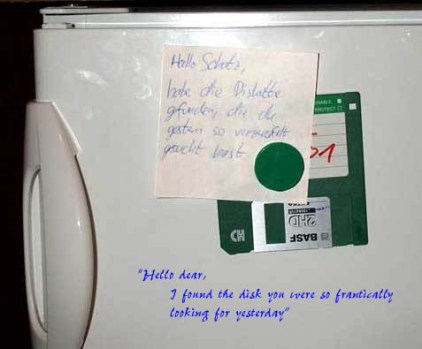 Hallo Schatz,
habe die Diskette
gefunden, die du
gestern so verzweifelt
gesucht hast.
51
BASF
2HD
EXTRA
"Hello dear,
I found the disk you were so frantically
looking for yesterday"